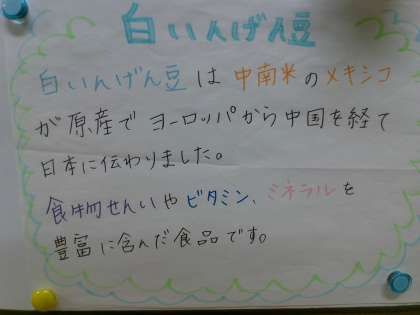 白いんげん豆
白いんげん豆は中南米のメキシコ
が原産でヨーロッパから中国を経て
日本に伝わりました。
食物せんいやビタミン、ミネラルを
豊富に含んだ食品です。